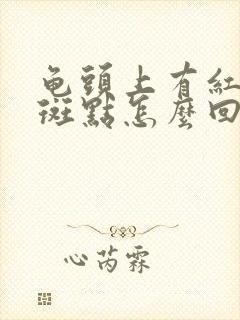 龟頭上有紅
斑點怎麼回
心芮霖